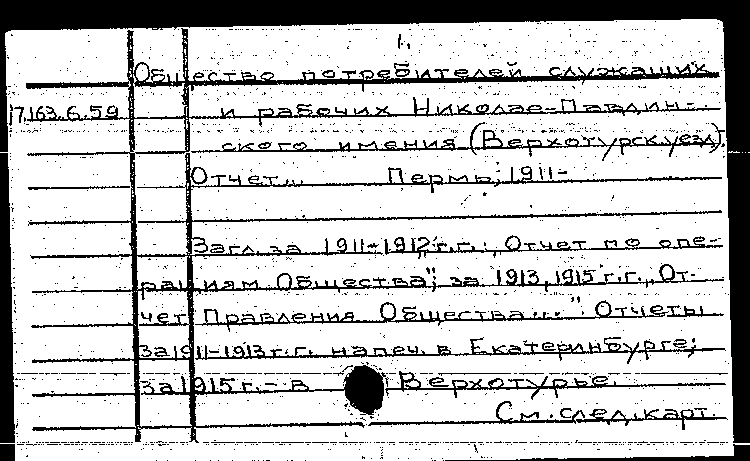 1.
Общество потребителей служащих
17.163.6.59 и рабочих Николае-Павдин-
ского имения (Верхотурск.уезд).
Отчет... Пермь, 1911-
Загл. за 1911-1912 г.г.: „Отчет по опе-
рациям Общества", за 1913, 1915 г.г. „От-
чет Правления Общества...". Отчеты
за 1911-1913 г.г. напеч. в Екатеринбурге;
за 1915 г. - в Верхотурье.
См. след. карт.